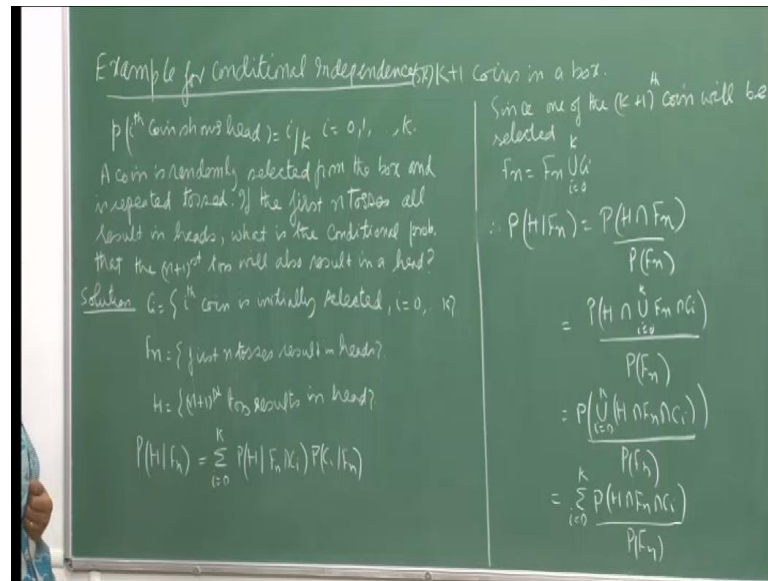 Example for Conditional Independence (5.k) K+1 coins in a box.
P(i^th coin shows head) = i/K i = 0, 1, , K.
A coin is randomly selected from the box and
is repeated tossed. If the first n tosses all
result in heads, what is the conditional prob.
that the (n+1)^st toss will also result in a head?
Solution Ci = { i^th coin is initially selected, i=0, .. K}
Fn = { first n tosses result in heads}
H = {(n+1)^st toss results in head}
P(H|Fn) = Σ_{i=0}^{K} P(H|Fn∩Ci) P(Ci|Fn)
Since one of the (K+1)^th coin will be
selected
Fn = Fn ∪_{i=0}^{K} Ci
∴ P(H|Fn) = P(H∩Fn)
P(Fn)
= P(H ∩ ∪_{i=0}^{K} Fn∩Ci)
P(Fn)
= P(∪_{i=0}^{K} (H∩Fn∩Ci))
P(Fn)
= Σ_{i=0}^{K} P(H∩Fn∩Ci)
P(Fn)